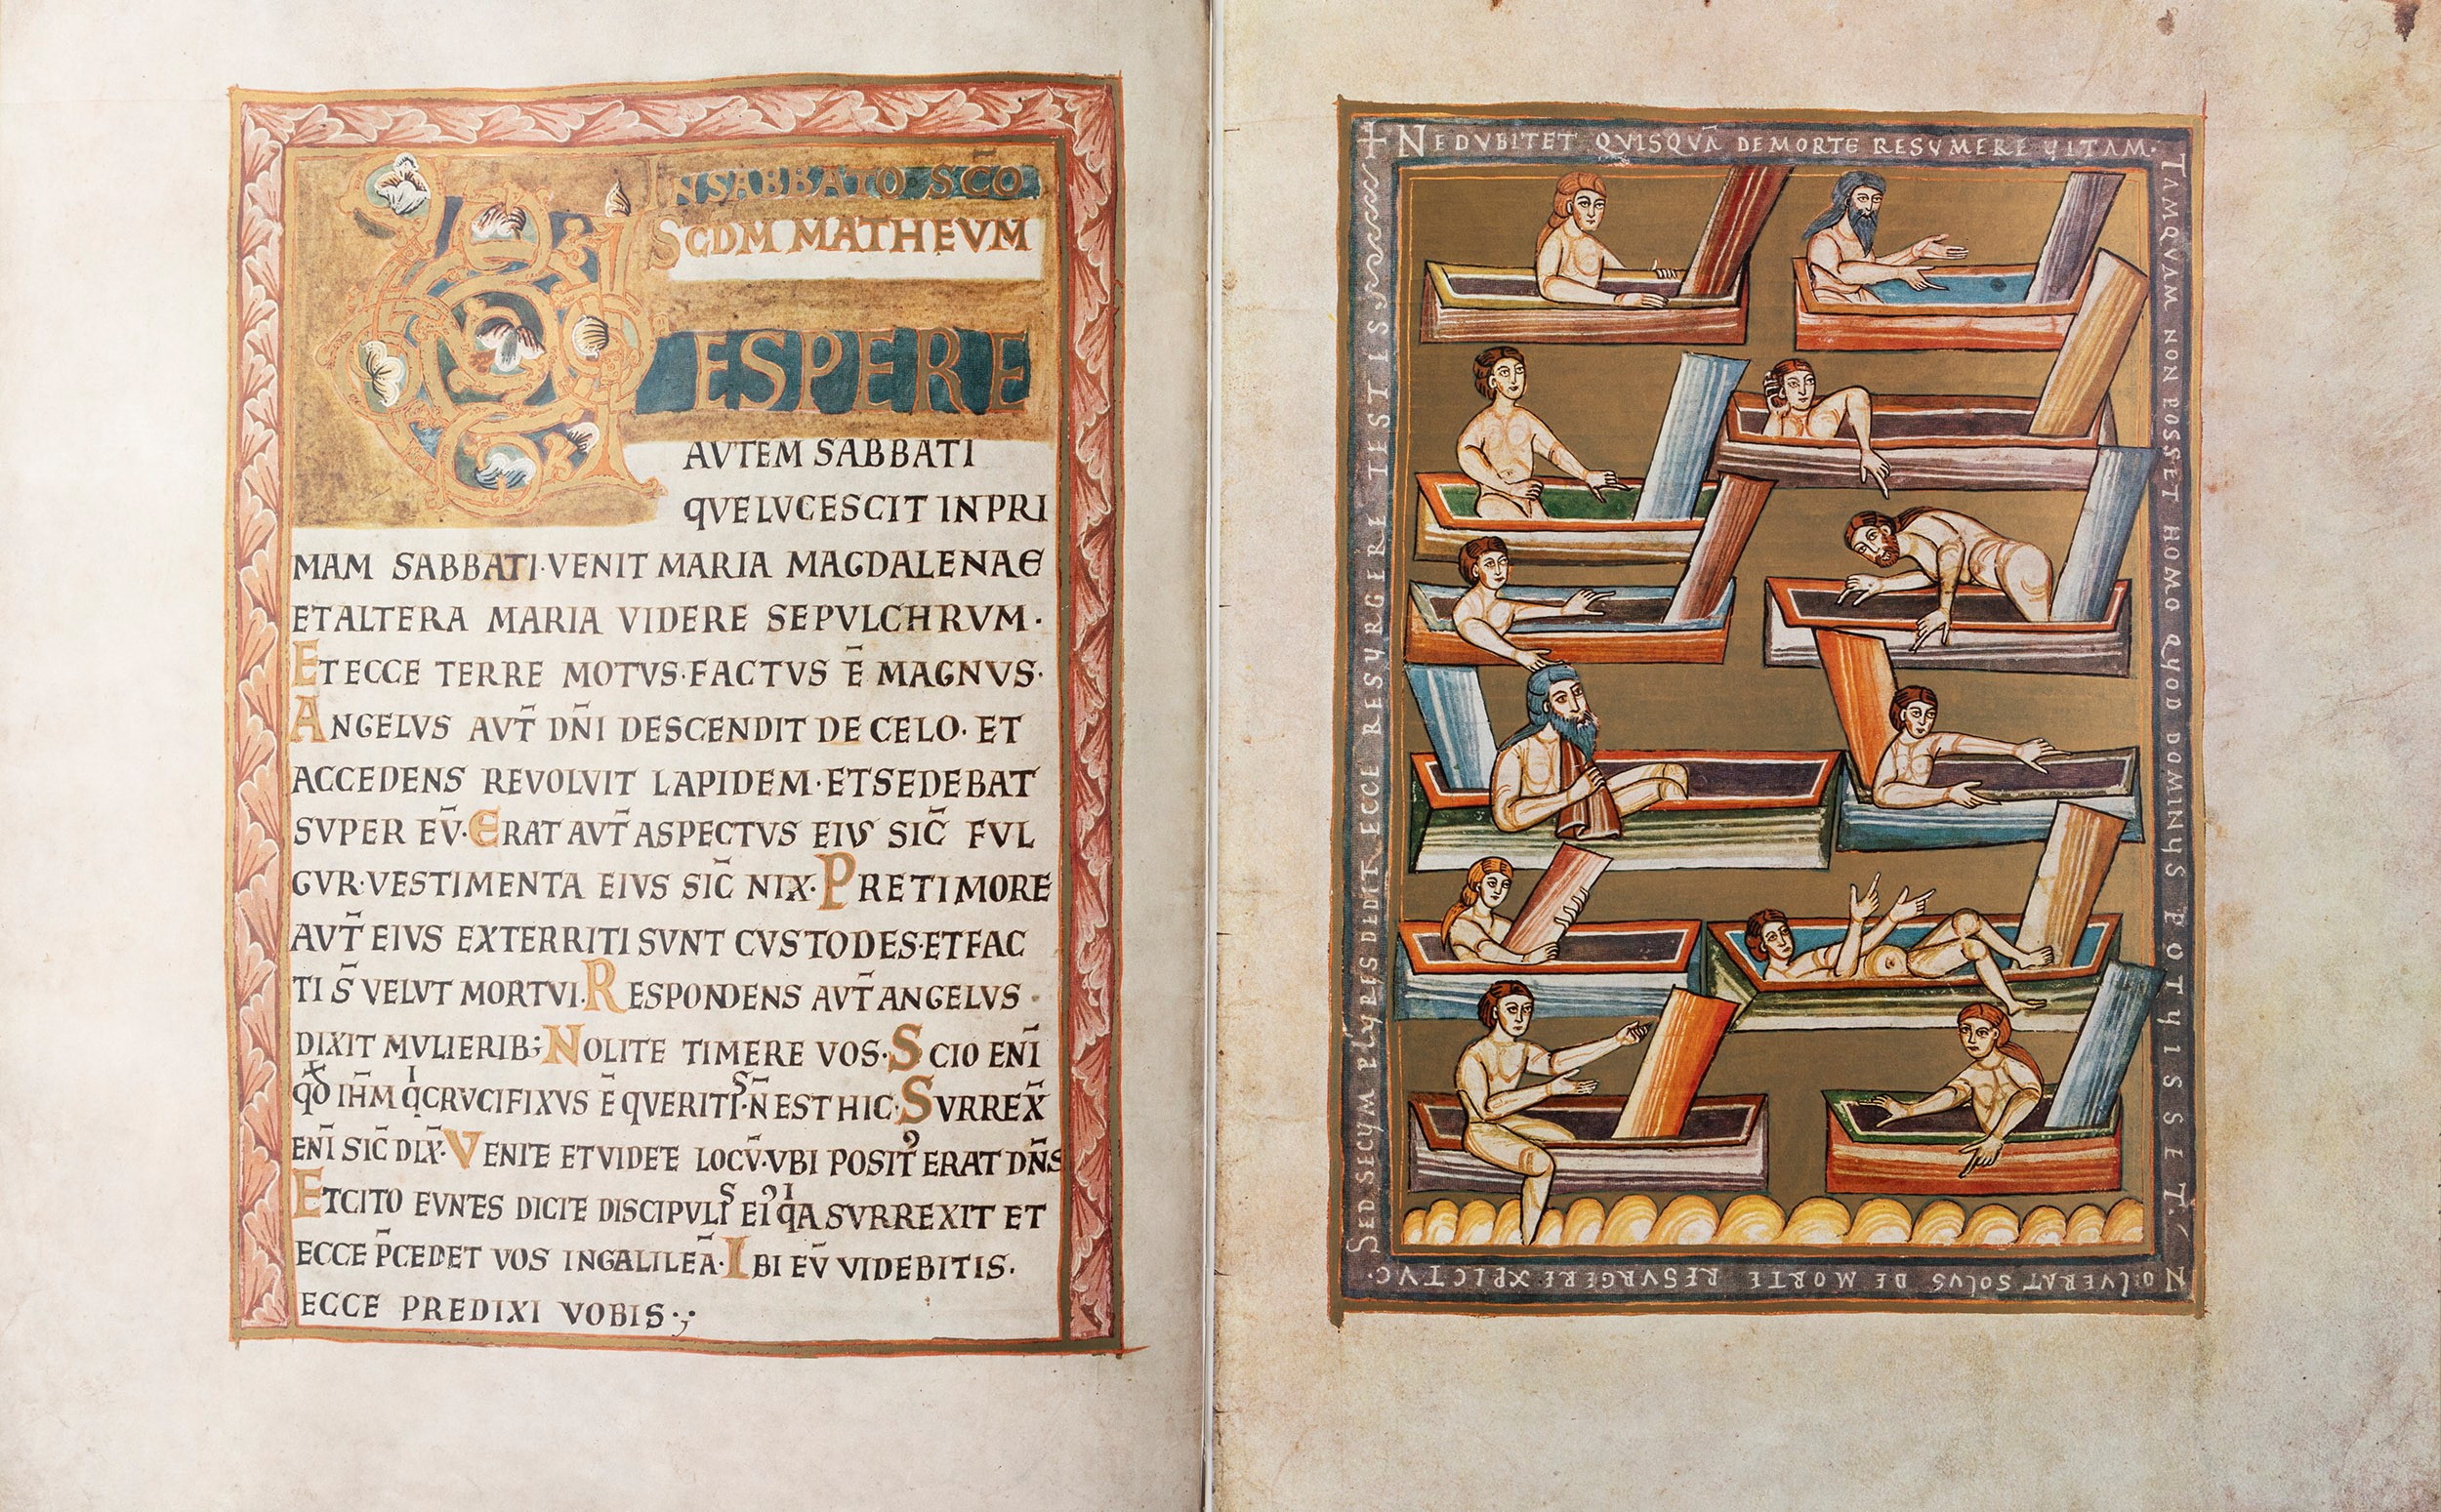 IN SABBATO SC̄O
SCD̄M MATHEVM
VESPERE
AVTEM SABBATI
QVE LVCESCIT IN PRI
MAM SABBATI·VENIT MARIA MAGDALENAE
ET ALTERA MARIA VIDERE SEPVLCHRVM·
ET ECCE TERRE MOTVS·FACTVS Ē MAGNVS·
ANGELVS AVT̄ DN̄I DESCENDIT DE CELO·ET
ACCEDENS REVOLVIT LAPIDEM·ET SEDEBAT
SVPER EV̄·ERAT AVT̄ ASPECTVS EIVS SIC̄ FVL
GVR·VESTIMENTA EIVS SIC̄ NIX·PRE TIMORE
AVT̄ EIVS EXTERRITI SVNT CVSTODES·ET FAC
TI S̄ VELVT MORTVI·RESPONDENS AVT̄ ANGELVS
DIXIT MVLIERIB;·NOLITE TIMERE VOS·SCIO ENĪ
QD̄ IHM̄ QI CRVCIFIXVS Ē QVERITIS·N̄ EST HIC·SVRREX̄
ENĪ SIC̄ DIX̄·VENITE ET VIDETE LOCV̄·VBI POSITꝰ ERAT DN̄S
ET CITO EVNTES DICITE DISCIPVLIS EIꝰ QIA SVRREXIT ET
ECCE P̄CEDET VOS IN GALILEĀ·IBI EV̄ VIDEBITIS·
ECCE PREDIXI VOBIS·;
43
+ NE DVBITET QVISQVĀ DE MORTE RESVMERE VITAM·
TAMQVAM NON POSSET HOMO QVOD DOMINVS POTVISSET·
NOLVERAT SOLVS DE MORTE RESVRGERE XPICTVC·
SED SECVM PLVRES DEDIT ECCE RESVRGERE TESTIS